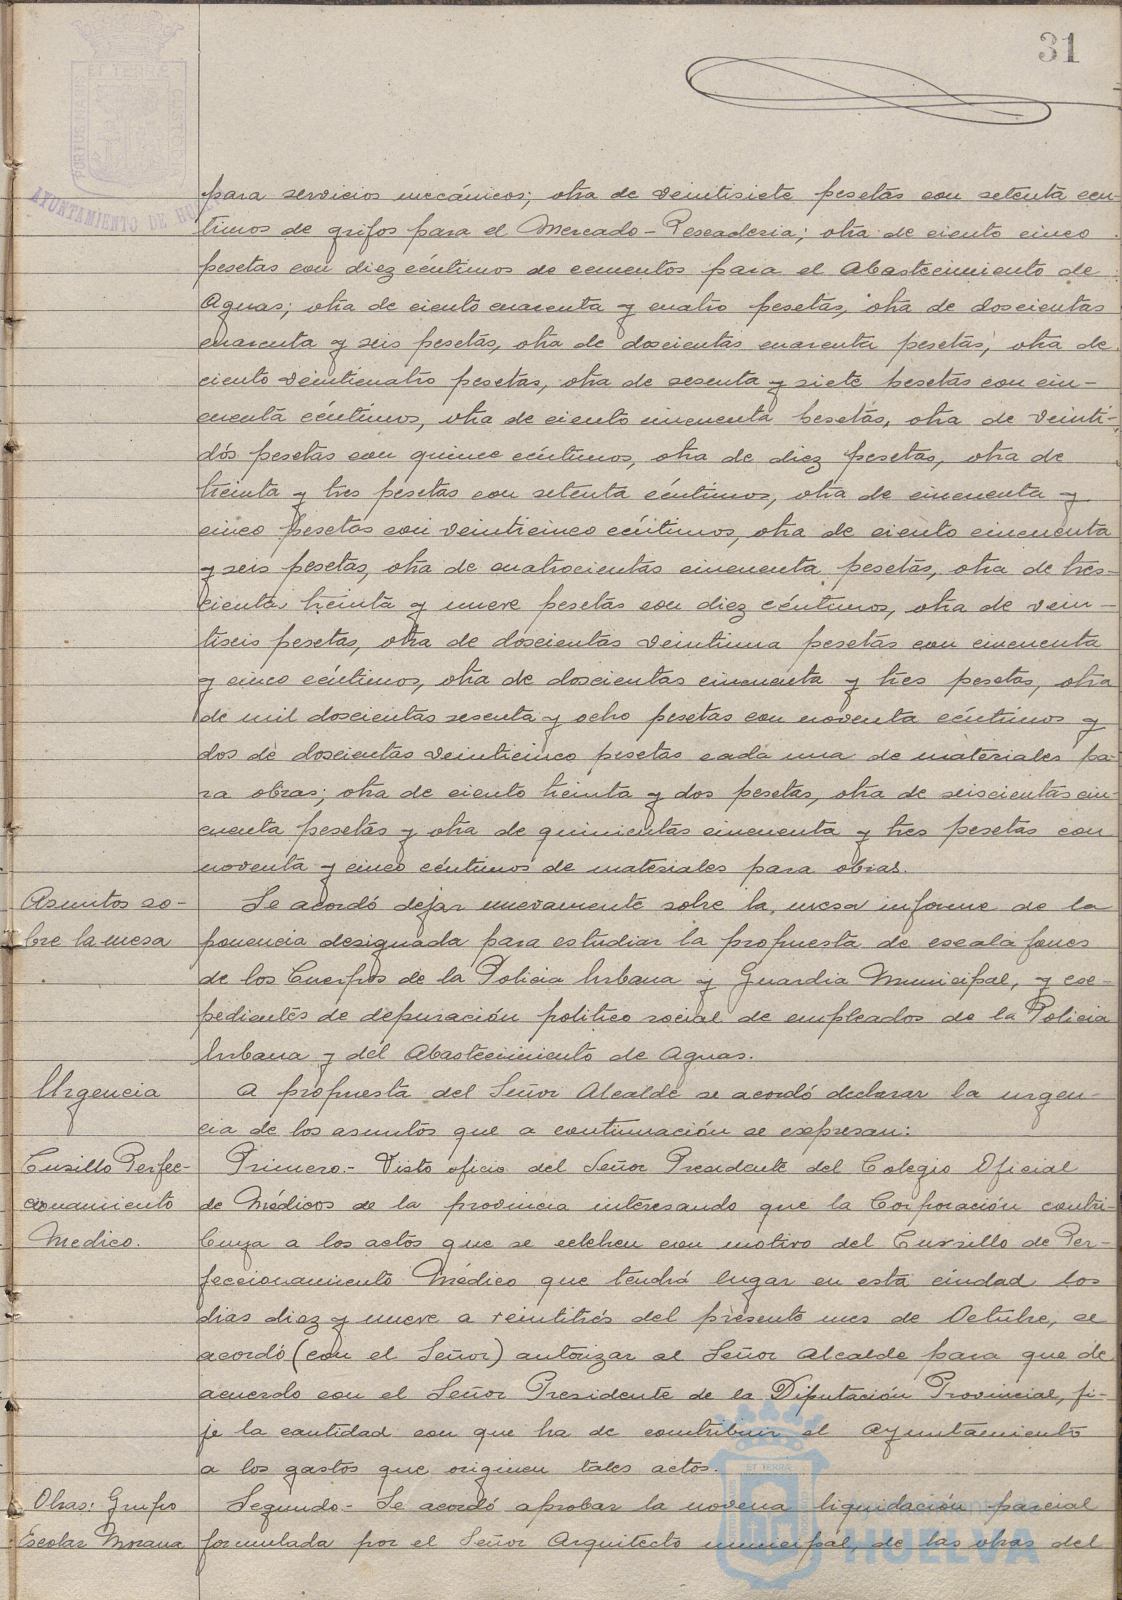 31
ET TERRÆ
PORTUS MARIS
CUSTODIA
AYUNTAMIENTO DE HU
para servicios mecánicos; otra de veintisiete pesetas con setenta cen-
timos de grifos para el Mercado-Pescaderia; otra de ciento cinco
pesetas con diez céntimos de cementos para el Abastecimiento de
Aguas; otra de ciento cuarenta y cuatro pesetas, otra de doscientas
cuarenta y seis pesetas, otra de doscientas cuarenta pesetas, otra de
ciento veinticuatro pesetas, otra de sesenta y siete pesetas con cin-
cuenta céntimos, otra de ciento cincuenta pesetas, otra de veinti-
dós pesetas con quince céntimos, otra de diez pesetas, otra de
treinta y tres pesetas con setenta céntimos, otra de cincuenta y
cinco pesetas con veinticinco céntimos, otra de ciento cincuenta
y seis pesetas, otra de cuatrocientas cincuenta pesetas, otra de tres-
cientas treinta y nueve pesetas con diez céntimos, otra de vein-
tiseis pesetas, otra de doscientas veintiuna pesetas con cincuenta
y cinco céntimos, otra de doscientas cincuenta y tres pesetas, otra
de mil doscientas sesenta y ocho pesetas con noventa céntimos y
dos de doscientas veinticinco pesetas cada una de materiales pa-
ra obras; otra de ciento treinta y dos pesetas, otra de seiscientas cin-
cuenta pesetas y otra de quinientas cincuenta y tres pesetas con
noventa y cinco céntimos de materiales para obras.
Asuntos so-
bre la mesa
Se acordó dejar nuevamente sobre la mesa informe de la
ponencia designada para estudiar la propuesta de escalafones
de los Cuerpos de la Policia Urbana y Guardia Municipal, y exe-
pedientes de depuración politico social de empleados de la Policia
Urbana y del Abastecimiento de Aguas.
Urgencia
A propuesta del Señor Alcalde se acordó declarar la urgen-
cia de los asuntos que a continuación se expresan:
Cursillo Perfec-
cionamiento
Medico.
Primero.- Visto oficio del Señor Presidente del Colegio Oficial
de Médicos de la provincia interesando que la Corporación contri-
buya a los actos que se celebren con motivo del Cursillo de Per-
feccionamiento Médico que tendrá lugar en esta ciudad los
dias diez y nueve a veintitrés del presente mes de Octubre, se
acordó (con el Señor) autorizar al Señor Alcalde para que de
acuerdo con el Señor Presidente de la Diputación Provincial, fi-
je la cantidad con que ha de contribuir el Ayuntamiento
a los gastos que originen tales actos.
Obras: Grupo
Escolar Morana
Segundo.- Se acordó aprobar la novena liquidación parcial
formulada por el Señor Arquitecto municipal, de las obras del
ET TERRA
Ayuntamiento de
HUELVA